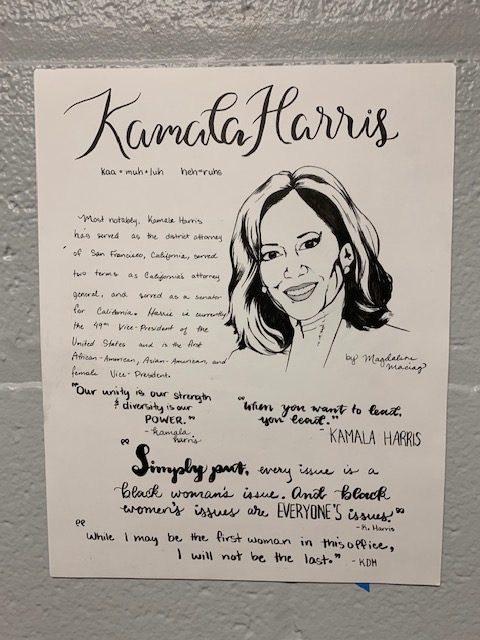 Kamala Harris
Kaa • muh • luh heh • ruhs
Most notably, Kamala Harris
has served as the district attorney
of San Francisco, California, served
two terms as California's attorney
general, and served as a senator
for California. Harris is currently
the 49th Vice-President of the
United States and is the first
African-American, Asian-American, and
female Vice-President.
by: Magdaline
Maciag
"Our unity is our strength
& diversity is our
POWER."
- Kamala
Harris
"When you want to lead,
you lead."
- KAMALA HARRIS
"Simply put, every issue is a
black woman's issue. And black
women's issues are EVERYONE'S issues."
- K. Harris
"While I may be the first woman in this office,
I will not be the last." - KDH